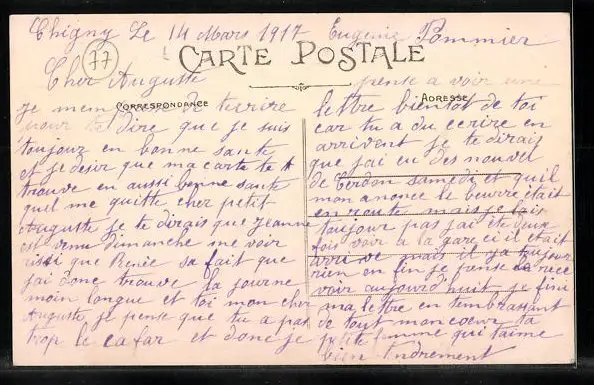 Chigny Le 14 Mars 1917 Eugenie Pommier
77
CARTE POSTALE
CORRESPONDANCE
ADRESSE
Cher Auguste
Je de tecrire
pour te dire que je suis
toujour en bonne sante
et je desir que ma carte te
trouve en aussi bonne sante
quel me quitte cher petit
Auguste je te dirais que Jeanne
est venu Dimanche me voir
que Renée sa fait que
jai donc trouve la journe
moin longue et toi mon cher
Auguste je pense que tu a pas
trop le cafar et donc je
pense a voir une
lettre bientot de toi
car tu a du ecrire en
arrivent je te dirais
que jai eu des nouvel
de Cerdon samedi et quil
mon anonce le beurre était
en route mais je
toujour pas jai ete deux
fois voir a la gare ci il était
arive mais il ja toujour
rien en fin je pense la rece
voir aujourd'huit je finis
ma lettre en tembrassant
de tout mon coeur ta
petite femme qui taime
bien tendrement